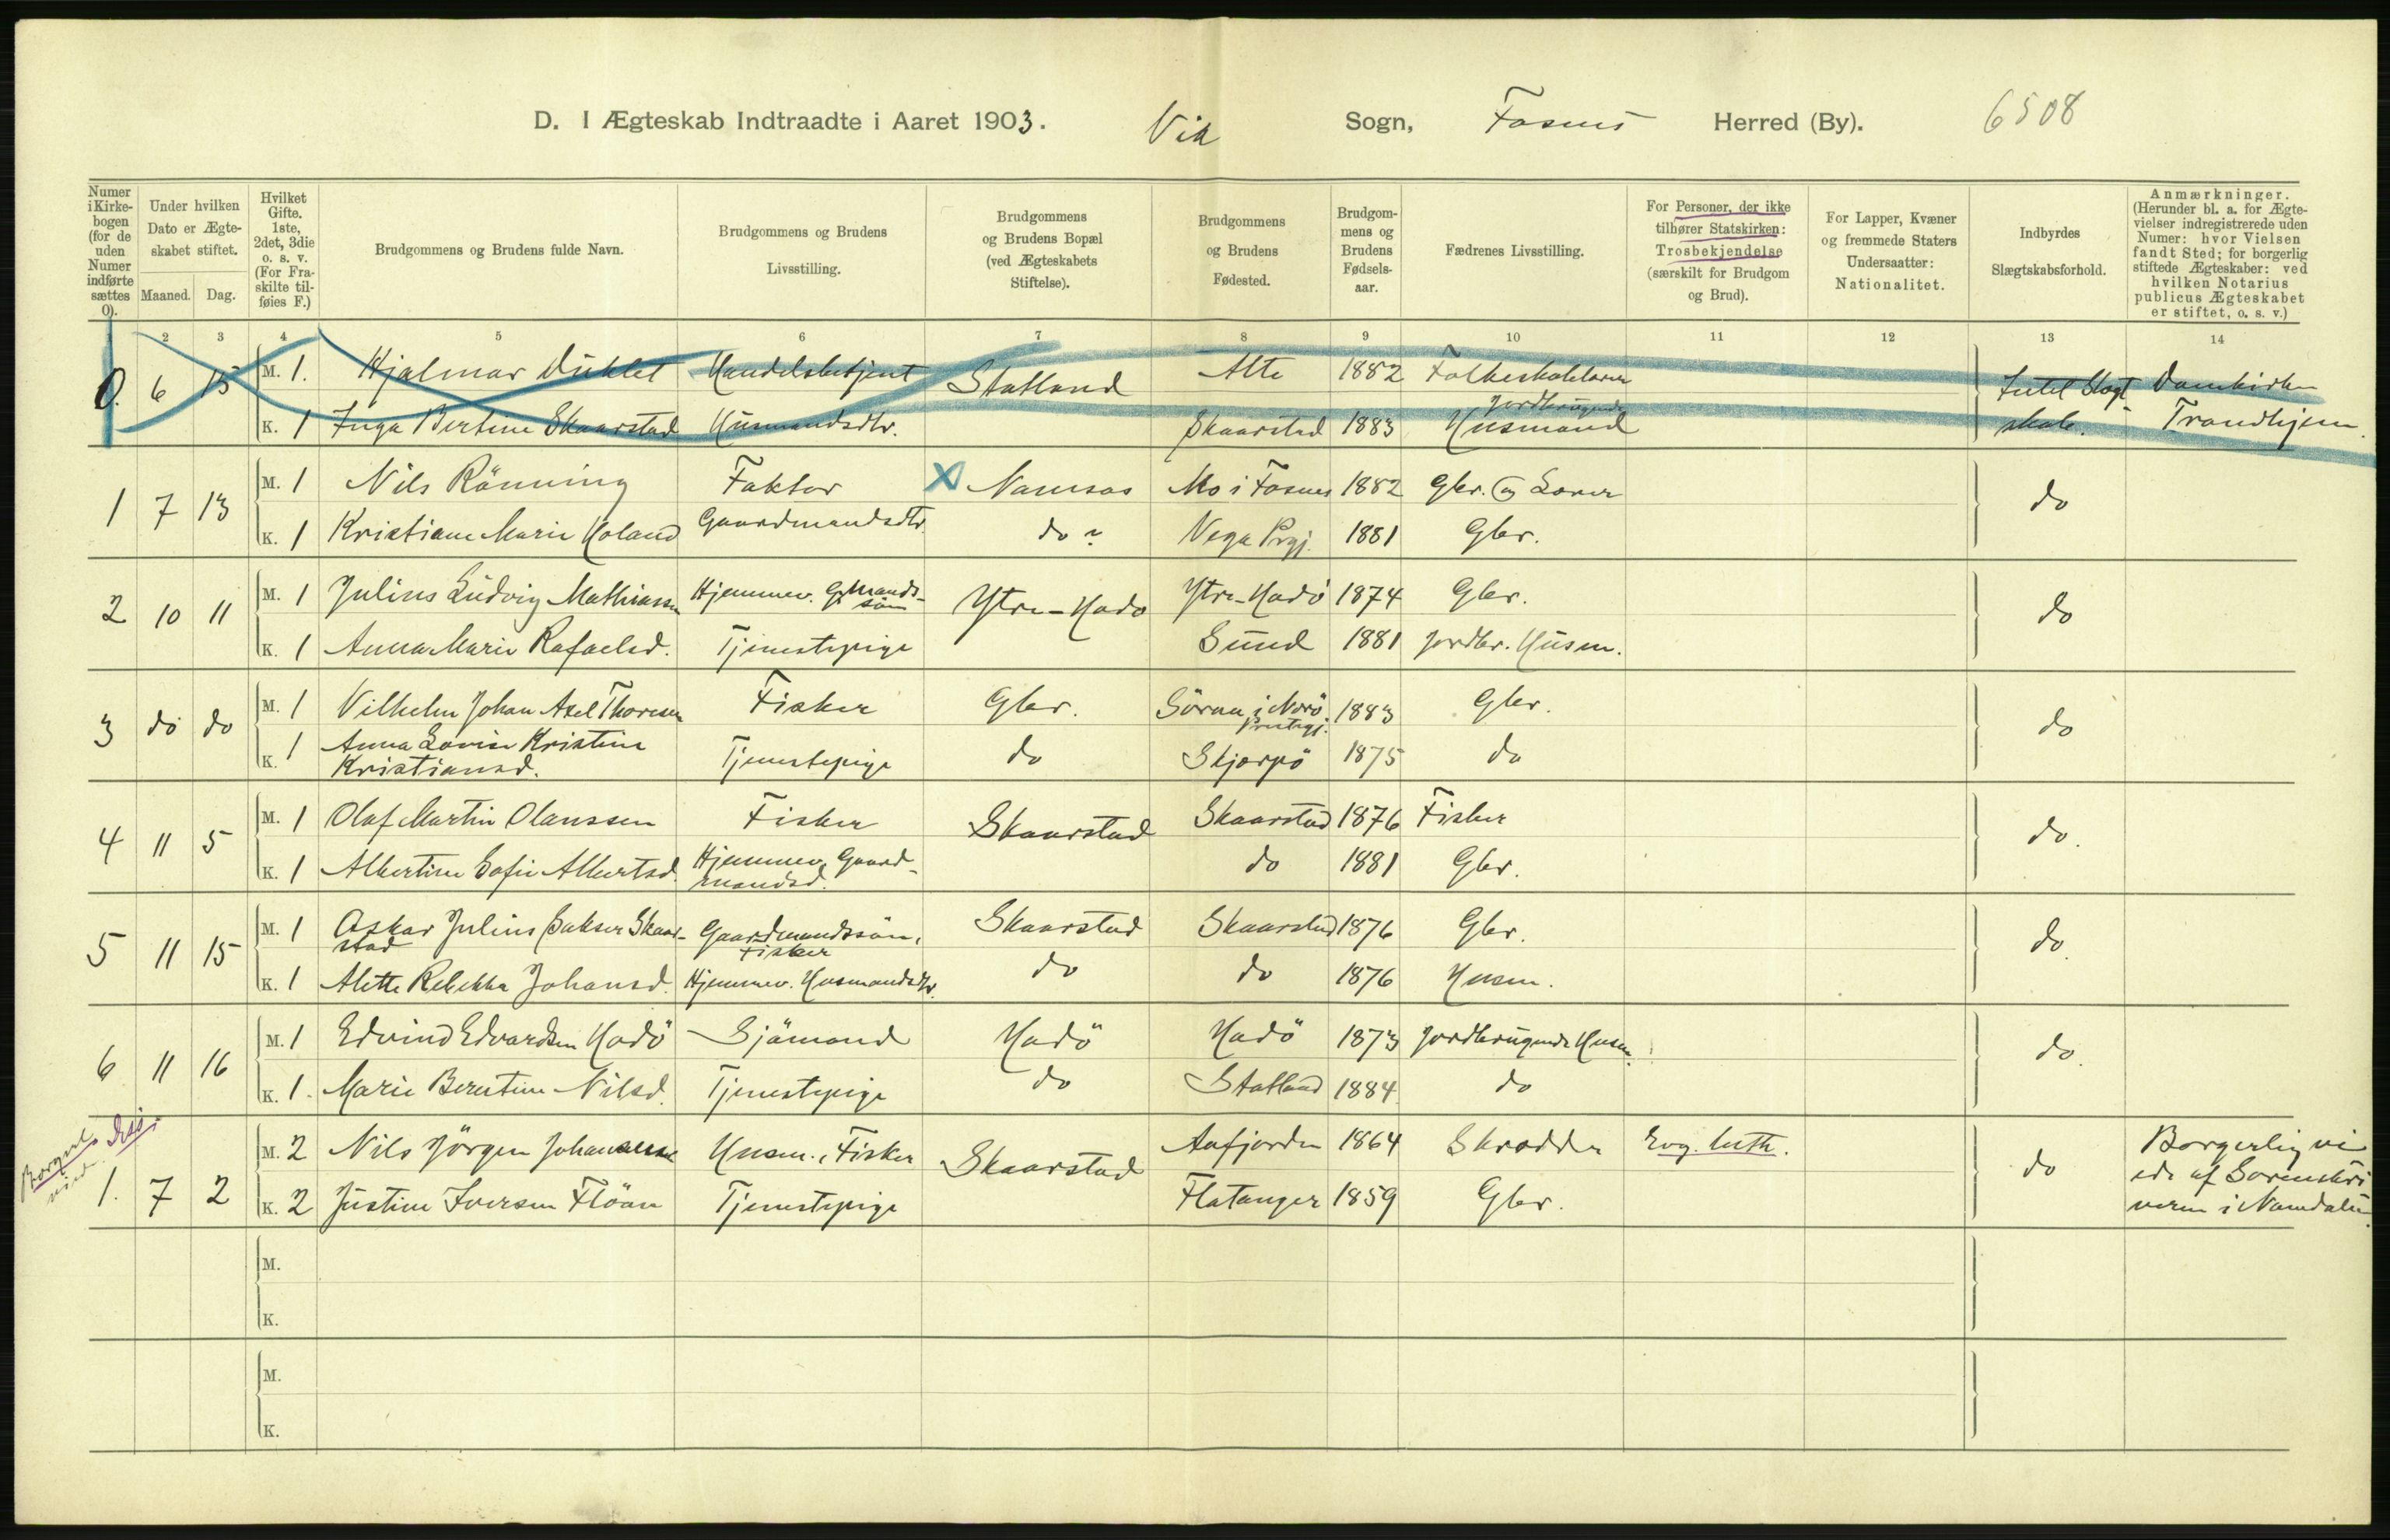 D. I Ægteskab Indtraadte i Aaret 1903. Vik Sogn, Fosnes Herred (By). 6508
Numer i Kirke-bogen (for de uden Numer indførte sættes 0).
Under hvilken Dato er Ægte-skabet stiftet.
Maaned. Dag.
Hvilket Gifte. 1ste, 2det, 3die o. s. v. (For Fra-skilte til-føies F.)
Brudgommens og Brudens fulde Navn.
Brudgommens og Brudens Livsstilling.
Brudgommens og Brudens Bopæl (ved Ægteskabets Stiftelse).
Brudgommens og Brudens Fødested.
Brudgom-mens og Brudens Fødsels-aar.
Fædrenes Livsstilling.
For Personer, der ikke tilhører Statskirken: Trosbekjendelse (særskilt for Brudgom og Brud).
For Lapper, Kvæner og fremmede Staters Undersaatter: Nationalitet.
Indbyrdes Slægtskabsforhold.
Anmærkninger. (Herunder bl. a. for Ægte-vielser indregistrerede uden Numer: hvor Vielsen fandt Sted; for borgerlig stiftede Ægteskaber: ved hvilken Notarius publicus Ægteskabet er stiftet, o. s. v.)
1 2 3 4 5 6 7 8 9 10 11 12 13 14
0. 6 15 M. 1. Hjalmar Duklet Handelsbetjent Statland Alte 1882 Folkeskolelærer Intet Slægt- Domkirken
K. 1 Inga Bertine Skaarstad Husmandsdtr. Skaarstad 1883 Jordbrugende Husmand skab. Trondhjem.
1 7 13 M. 1 Nils Rönning Faktor X Namsos Mo i Fosnes 1882 Gbr. og Lærer do
K. 1 Kristiane Marie Holand Gaardmandsdtr. do ? Vega Prgj. 1881 Gbr.
2 10 11 M. 1 Julius Ludvig Mathiassen Hjemmev. Gmands-søn Ytre-Hadø Ytre-Hadø 1874 Gbr. do
K. 1 Anna Marie Rafaelsd. Tjenestepige Sund 1881 Jordbr. Husm.
3 do do M. 1 Vilhelm Johan Axel Thoresen Fisker Gbr. i Nærö Prestegj. 1883 Gbr. do
K. 1 Anna Lovise Kristine Kristiansd. Tjenestepige do Skjærpö 1875 do
4 11 5 M. 1 Olaf Martin Olaussen Fisker Skaarstad Skaarstad 1876 Fisker do.
K. 1 Albertine Sofie Albertsd. Hjemmev. Gaard-mandsd. do 1881 Gbr.
5 11 15 M. 1 Oskar Julius Isaksen Skaar-stad Gaardmandssøn, Fisker Skaarstad Skaarstad 1876 Gbr. do.
K. 1 Alette Rebekka Johansd. Hjemmev. Husmandsdtr. do do 1876 Husm.
6 11 16 M. 1 Edvind Edvardsen Hadö Sjömand Hadö Hadö 1873 Jordbrugende Husm. do.
K. 1. Marie Berntine Nilsd. Tjenestepige do Statland 1884 do
Borgerl. viet
1. 7 2 M. 2 Nils Jörgen Johansen Husm., Fisker Skaarstad Aafjorden 1864 Skrædder Evg. luth. do Borgerlig vi
K. 2 Justine Iversen Flöan Tjenestepige Flatanger 1859 Gbr. ede af Sorenskri
veren i Namdalen.
M.
K.
M.
K.